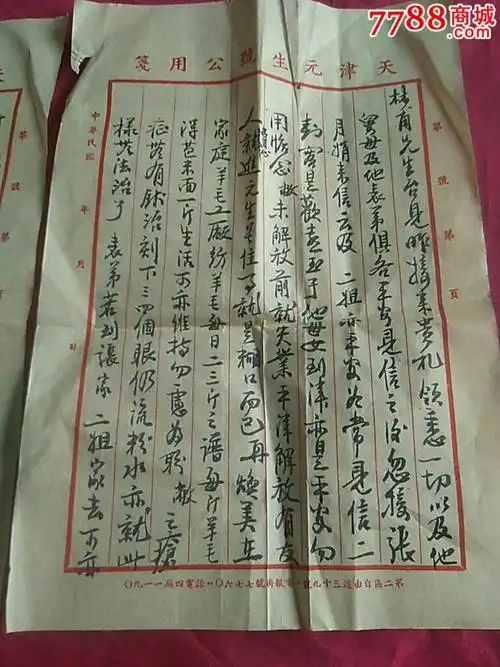 7788商城
天津元生號公用箋
第 號第 頁
林有先生台見昨接來貴札領悉一切以及他
舅母及他表弟俱各平安見信之後忽接張
月娟來信云及二姐亦平安如常見信二
封實是歡喜至于他母女到津亦是平安勿
用惦念敝未解放前就失業平津解放有友
人就進元生多佳下就是糊口而已再煥美在
家庭羊毛工廠紡羊毛每日二三斤之譜每斤羊毛
得苞米面一斤生活可亦維持勿慮為盼敝之瘡
症貴有鉢治刻下三四個眼仍流於水亦就此
樣無法治了表弟若到張家二姐家去可亦
中華民國 年 月 日
第二區自由道三十九號 電報掛號七七六〇 話電四局一一九〇